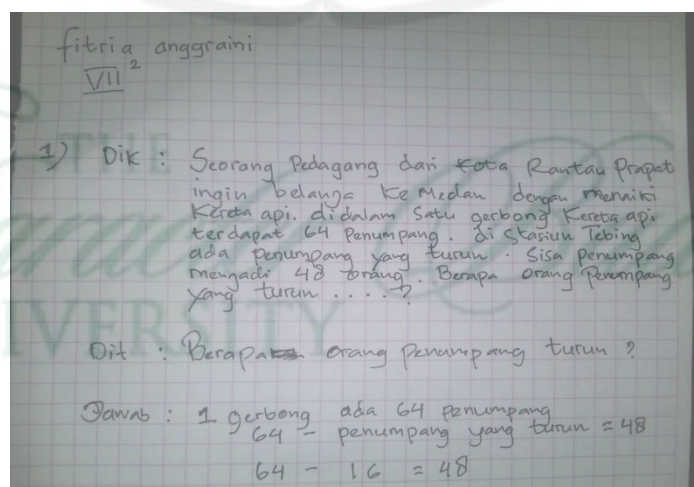 fitria anggraini
VII²
1) Dik : Seorang Pedagang dari kota Rantau Prapat
ingin belanja ke Medan dengan menaiki
Kereta api. didalam satu gerbong kereta api
terdapat 64 Penumpang. di stasiun Tebing
ada penumpang yang turun. Sisa penumpang
mengadi 48 orang. Berapa orang Penumpang
yang turun . . . . ?
Dit : Berapa orang penumpang turun ?
Jawab : 1 gerbong ada 64 penumpang
64 - penumpang yang turun = 48
64 - 16 = 48
THE
UNIVERSITY